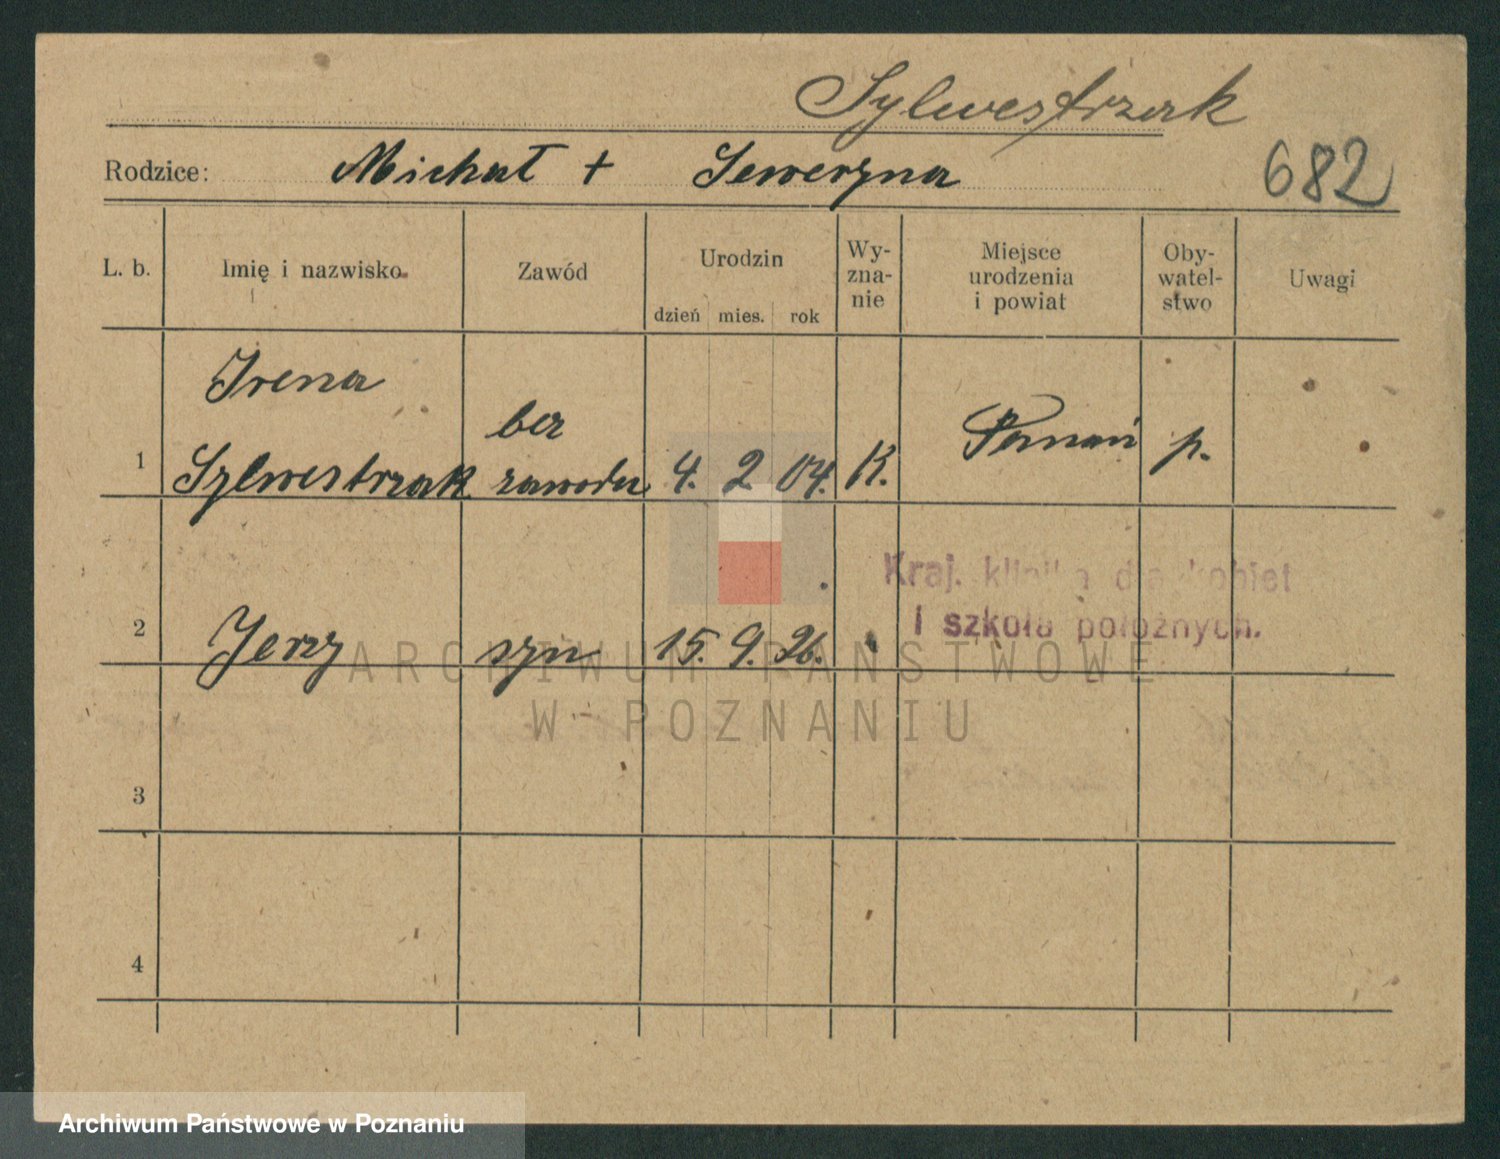 Sylwestrzak
Rodzice: Michał + Seweryna
682
L. b. Imię i nazwisko Zawód Urodzin dzień mies. rok Wy-zna-nie Miejsce urodzenia i powiat Oby-watel-stwo Uwagi
Irena
bez
Poznań p.
1 Sylwestrzak zawodu 4. 2 04. K.
Kraj. klinika dla kobiet
i szkoła położnych.
2 Jerzy syn 15. 9. 26.
ARCHIWUM PAŃSTWOWE
W POZNANIU
3
4
Archiwum Państwowe w Poznaniu